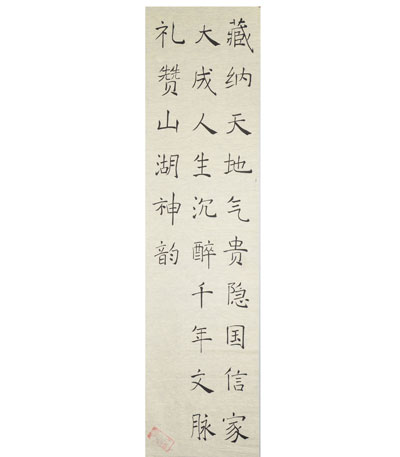 藏纳天地气贵隐国信家
大成人生沉醉千年文脉
礼赞山湖神韵